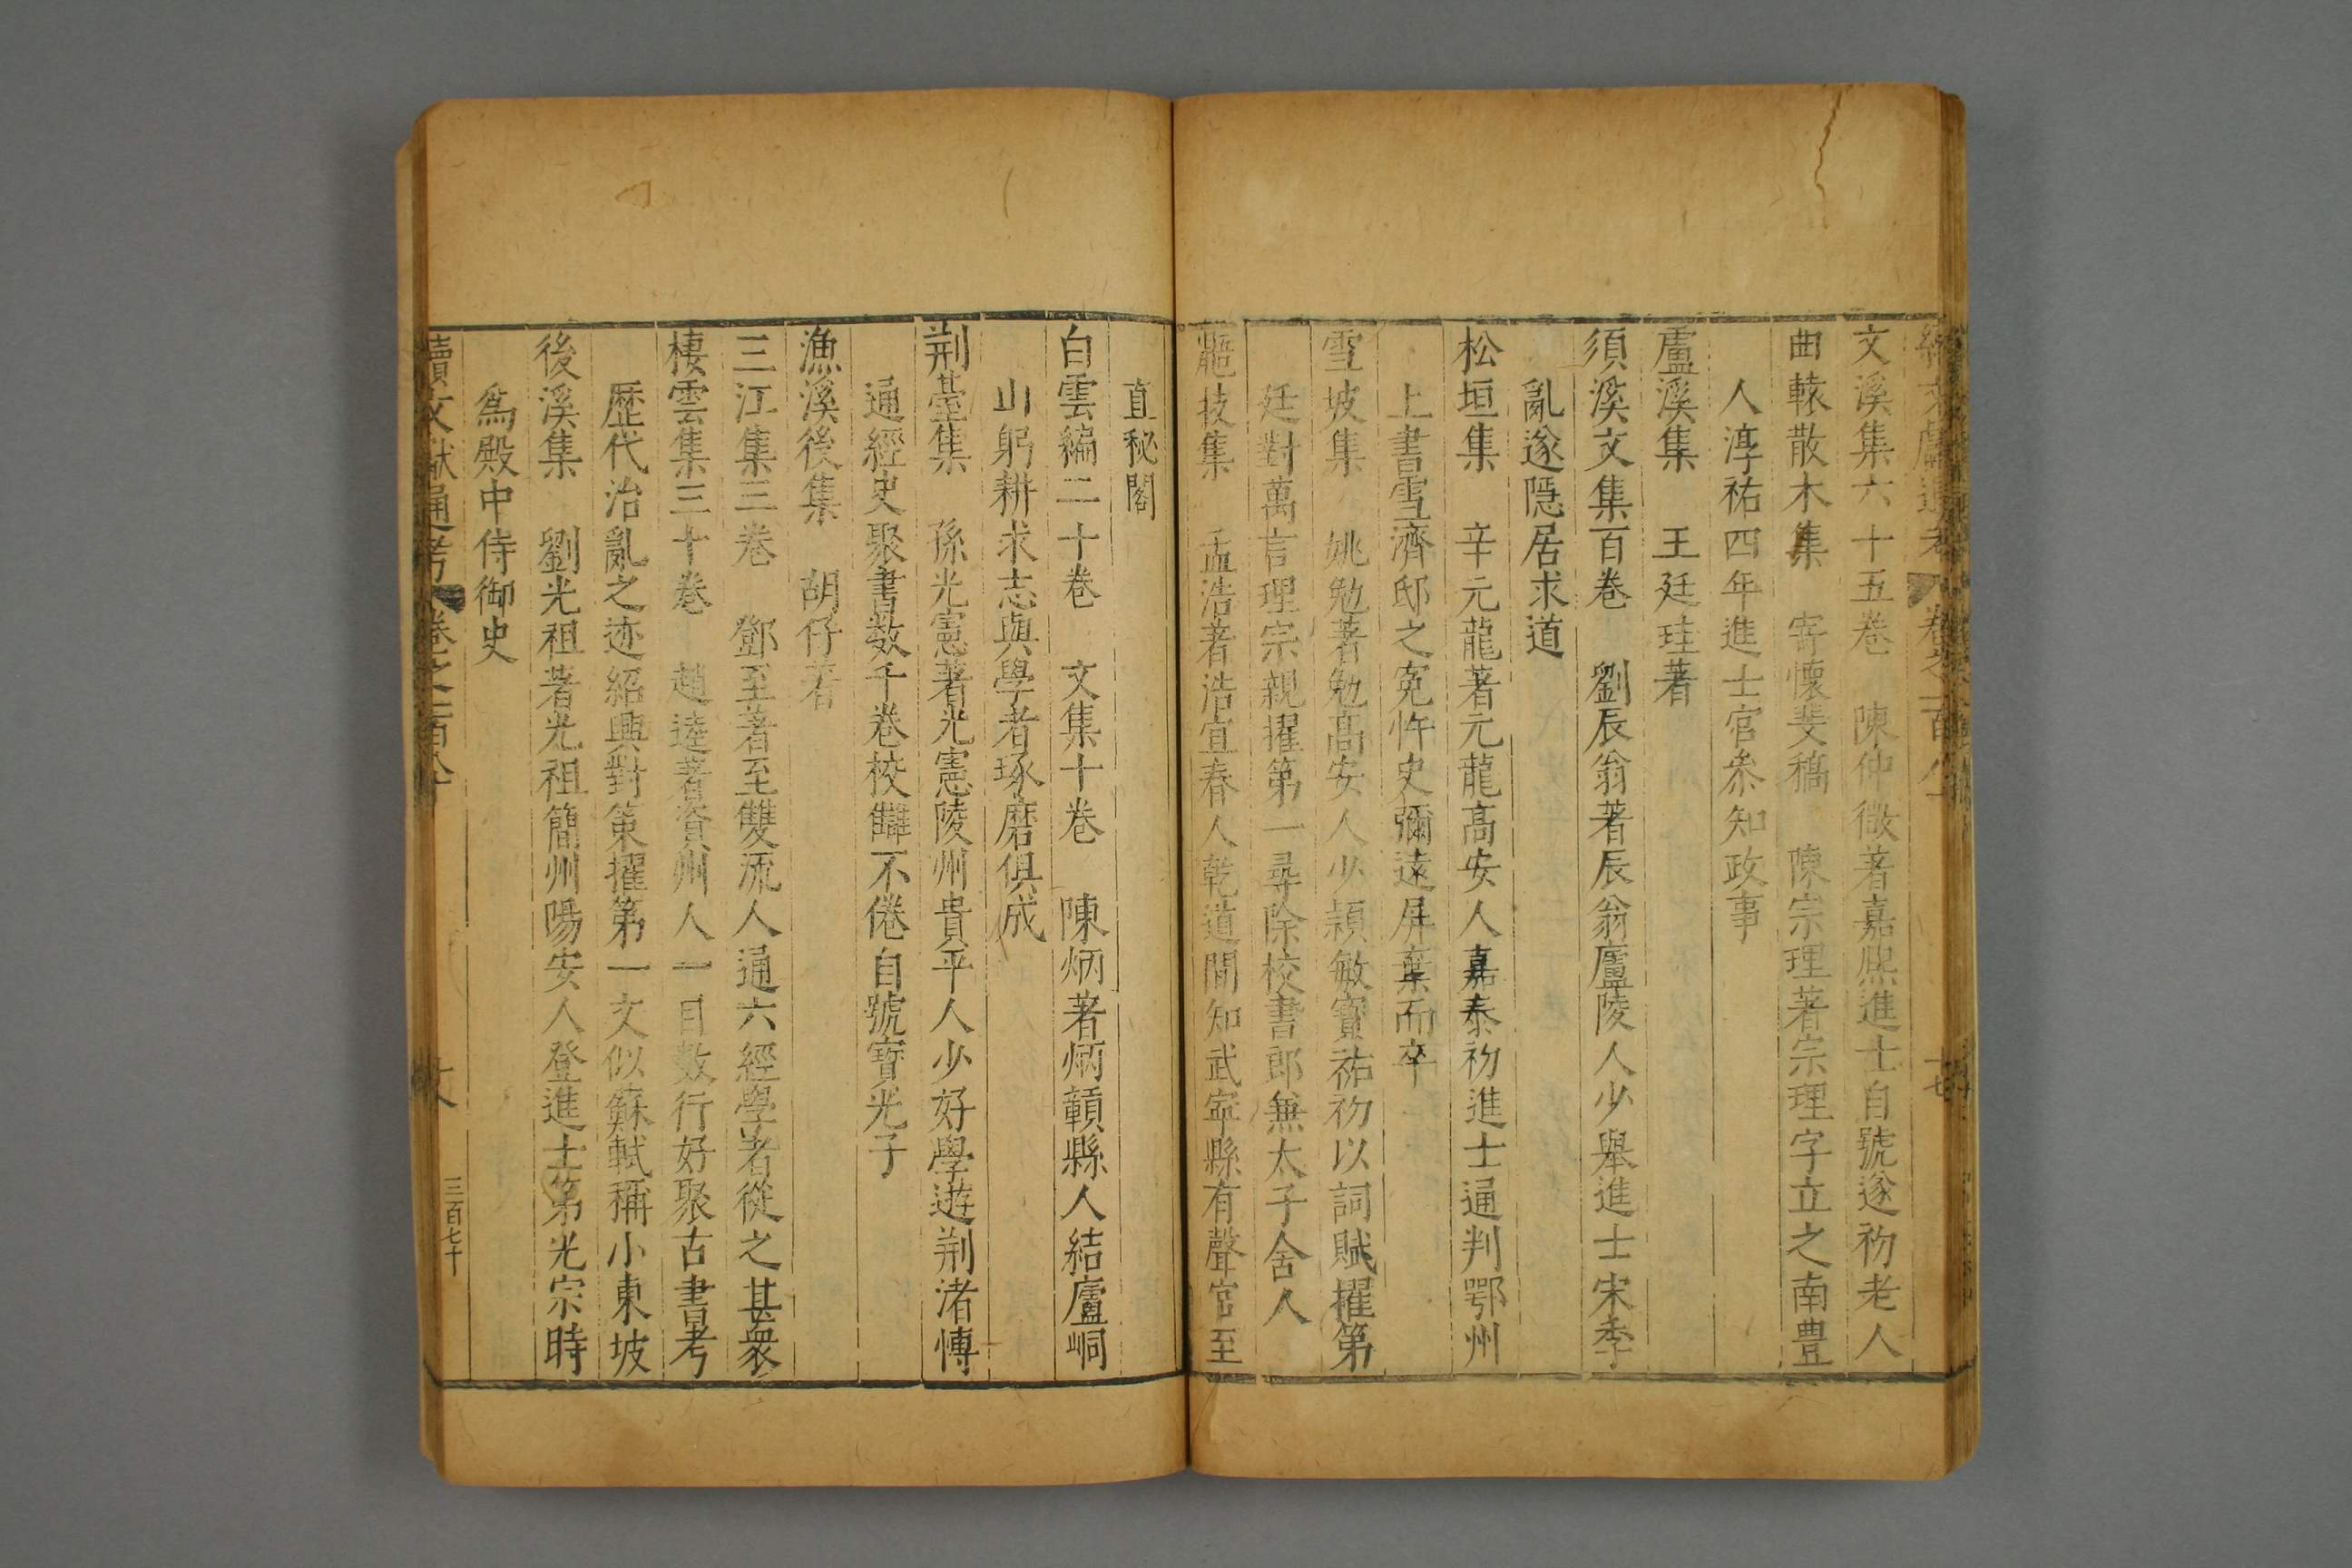 續文獻通考 卷之一百八十 十七
文溪集六十五卷 陳仲微著嘉熙進士自號遂初老人
曲轅散木集 寄懷斐稿 陳宗理著宗理字立之南豊
人淳祐四年進士官叅知政事
盧溪集 王廷珪著
須溪文集百卷 劉辰翁著辰翁廬陵人少舉進士宋季
亂遂隱居求道
松垣集 辛元龍著元龍高安人嘉泰初進士通判鄂州
上書雪濟邸之寃忤史彌遠屏棄而卒
雪坡集 姚勉著勉高安人少頴敏寳祐初以詞賦擢第
廷對萬言理宗親擢第一尋除校書郎無太子舍人
技集 孟浩著浩宜春人乾道間知武寧縣有聲官至
直秘閣
白雲編二十卷 文集十卷 陳炳著炳贑縣人結廬峒
山躬耕求志與學者琢磨俱成
荆臺集 孫光憲著光憲陵州貴平人少好學遊荆渚愽
通經史聚書数千卷校讎不倦自號寳光子
漁溪後集 胡仔著
三江集三卷 鄧至著至雙流人通六經學者從之甚衆
棲雲集三十卷 趙逵著資州人一目数行好聚古書考
歴代治亂之迹紹興對策擢第一文似蘇軾稱小東坡
後溪集 劉光祖著光祖簡州陽安人登進士第光宗時
爲殿中侍御史
續文獻通考 卷之一百八十 十八 三百七十